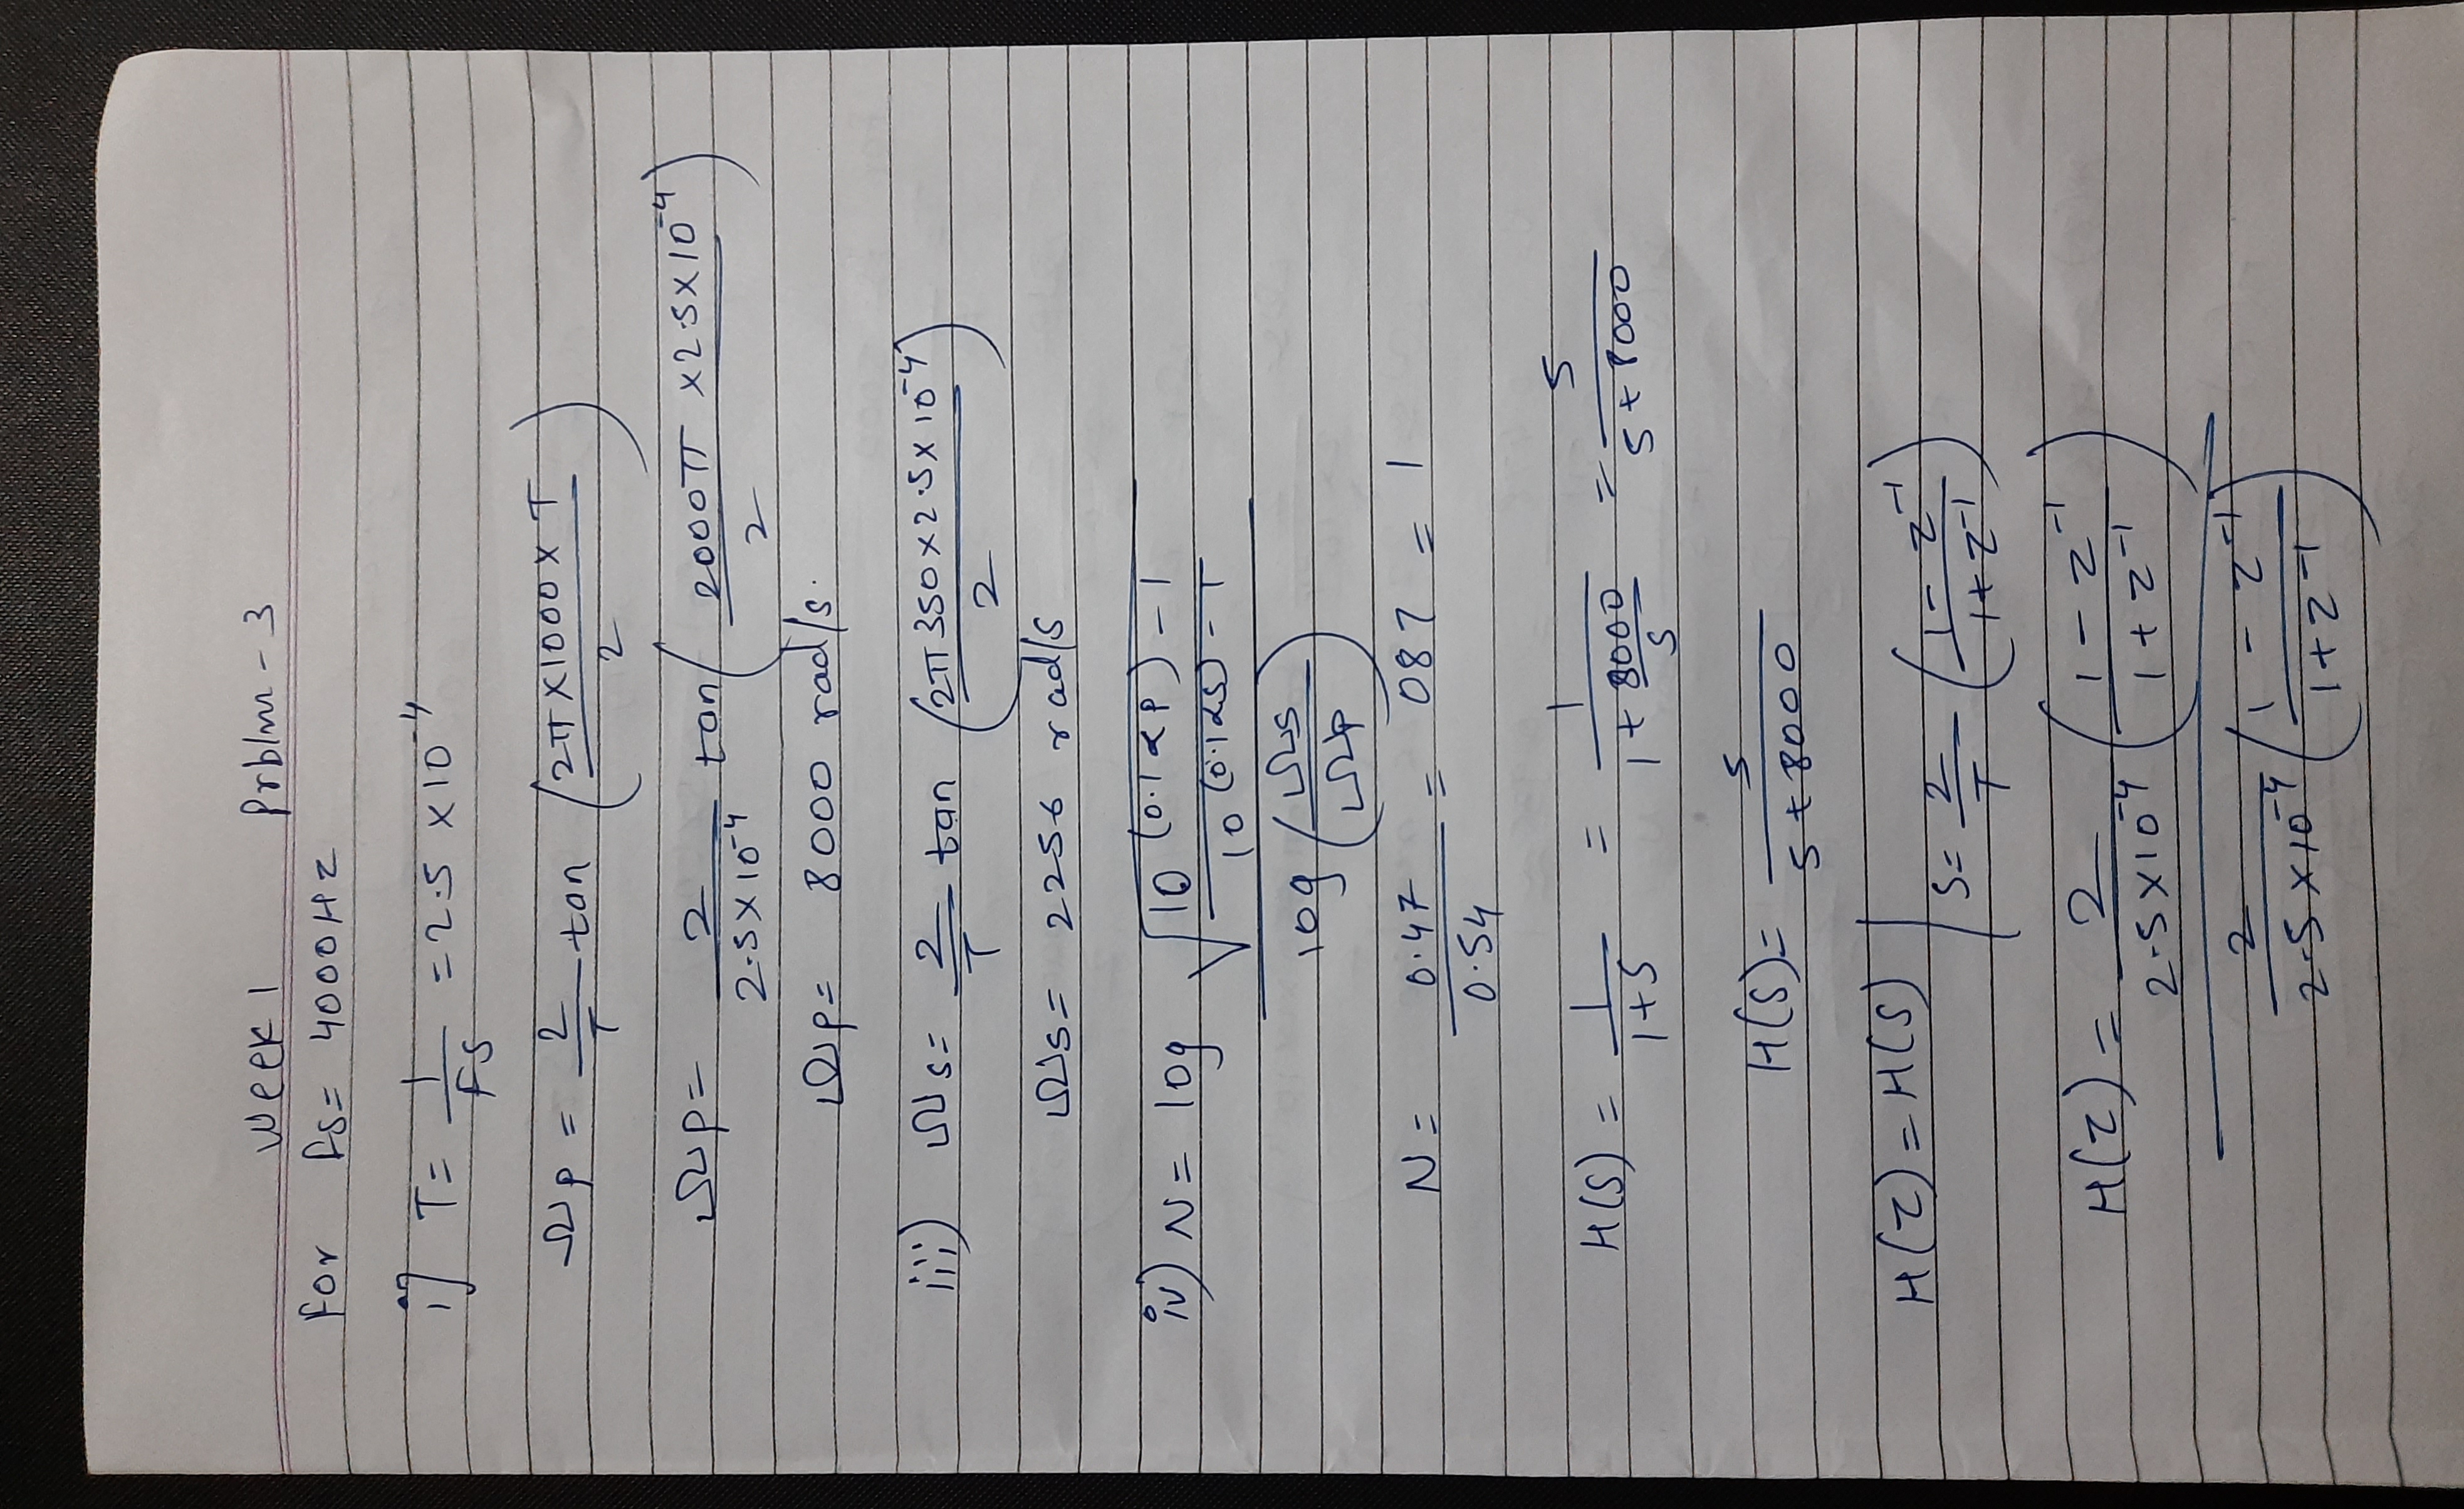 Week 1 Prblm - 3
For fs = 4000HZ
i] T = 1/FS = 2.5 × 10^-4
Ωp = 2/T tan (2π×1000×T / 2)
Ωp = 2/(2.5×10^-4) tan (2000π ×2.5×10^-4 / 2)
Ωp = 8000 rad/s.
iii) Ωs = 2/T tan (2π350×2.5×10^-4 / 2)
Ωs = 2256 rad/s
iv) N = log √(10^(0.1αp) - 1 / 10^(0.1αs) - 1)
log (Ωs/Ωp)
N = 0.47/0.54 = 087 = 1
H(S) = 1/(1+S) = 1/(1 + 8000/S) = S/(S + 8000)
H(S) = S/(S + 8000)
H(Z) = H(S) | S = 2/T (1 - Z^-1 / 1 + Z^-1)
H(Z) = 2/(2.5×10^-4) (1 - Z^-1 / 1 + Z^-1)
2/(2.5×10^-4) (1 - Z^-1 / 1 + Z^-1)